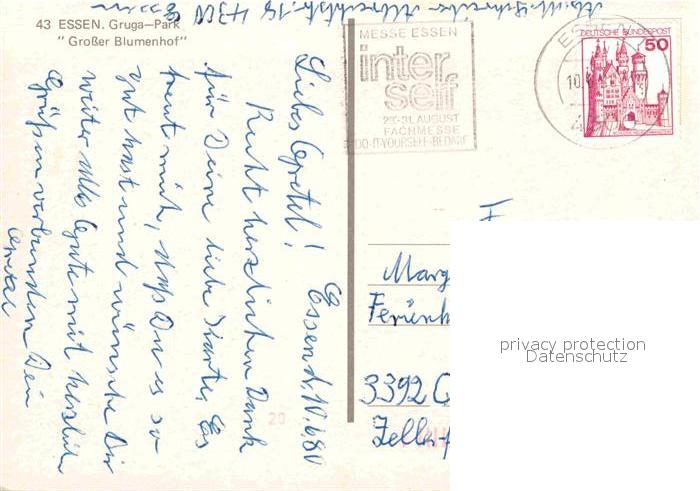 43 ESSEN. Gruga-Park
"Großer Blumenhof"
MESSE ESSEN
inter
self
27.-31. AUGUST
FACHMESSE
DO-IT-YOURSELF-BEDARF
ESSEN
10.
DEUTSCHE BUNDESPOST
50
Essen, d. 10.6.80
Liebe Gretel!
Recht herzlichen Dank
für Deine liebe Karte. Es
freut mich, daß Du es so
gut hast und wünsche Dir
weiter alles Gute mit herzlich
Grüßen verbunden Dein
43 Essen
Marg
Ferienh
3392 C
Zeller
20
privacy protection
Datenschutz